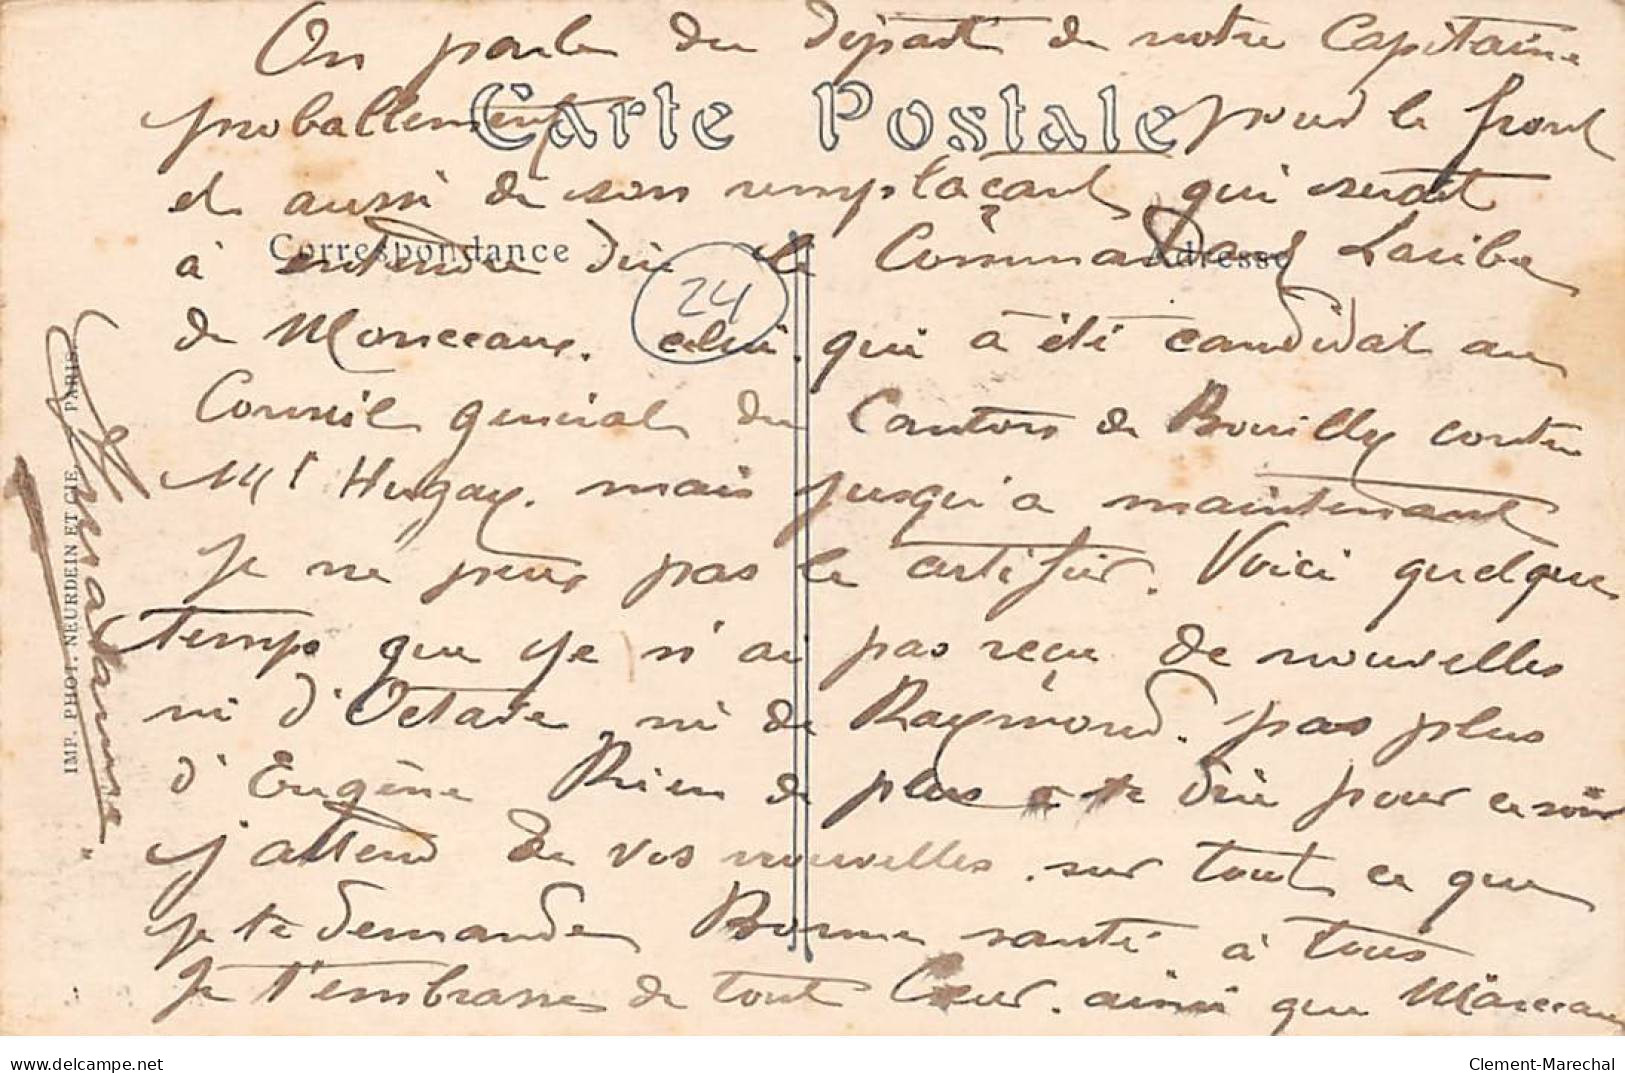 On parle du départ de notre Capitaine
Carte Postale
proballement pour le front
et aussi de son remplaçant, qui serait
Correspondance
Adresse
à entendre dire le Commandant Laribe
24
de Monceaux. celui qui à été candidat au
Conseil général du Canton de Bouilly contre
Mr Hugay. mais jusqu'a maintenant
Je ne peux pas le certifier. Voici quelque
temps que je n'ai pas reçu de nouvelles
ni d'Octave ni de Raymond. pas plus
d'Eugène Rien de plus a te dire pour ce soir
j'attend de vos nouvelles. sur tout ce que
je te demande Bonne santé à tous
Je t'embrasse de tout Cœur. ainsi que Marceau
IMP. PHOT. NEURDEIN ET CIE. PARIS.
delcampe.net
Clement-Marechal